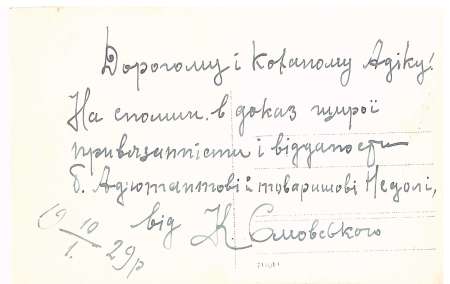 Дорогому і Коханому Адіку!
На спомин. в доказ щирої
привязанности і відданости
б. Адютантові і товаришові Недолі,
від К. Смовського
19 10/1. 29р